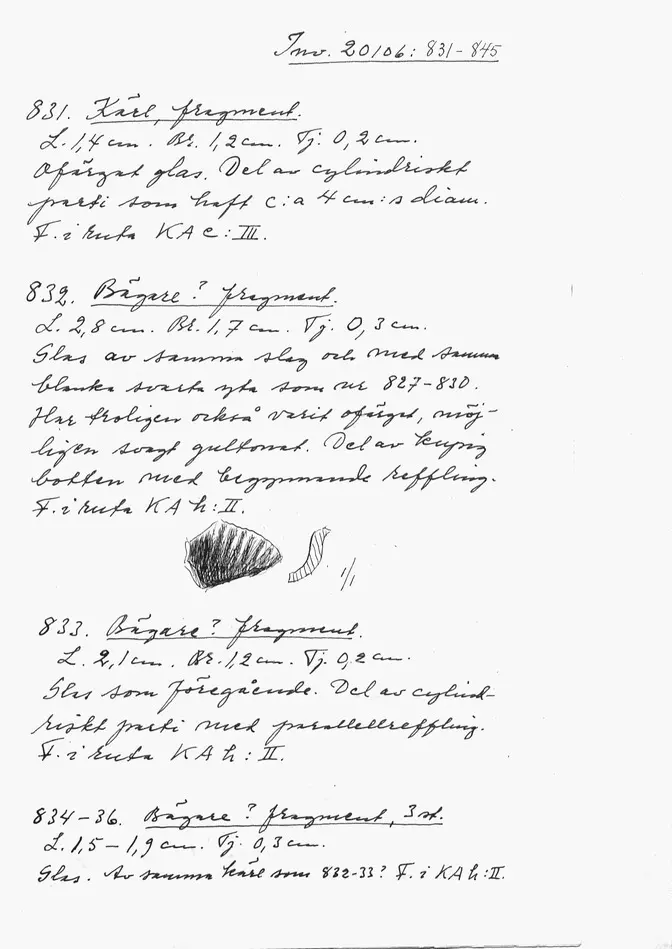 Inv. 20106: 831-845
831. Kärl, fragment.
L. 1,4 cm. Br. 1,2 cm. Tj. 0,2 cm.
Ofärgat glas. Del av cylindriskt
parti som haft c:a 4 cm:s diam.
F. i ruta KA c:III.
832. Bägare? fragment.
L. 2,8 cm. Br. 1,7 cm. Tj. 0,3 cm.
Glas av samma slag och med samma
blanka svarta yta som nr 827-830.
Har troligen också varit ofärgat, möj-
ligen svagt gultonat. Del av kupig
botten med begynnande reffling.
F. i ruta KA h:II.
1/1
833. Bägare? fragment.
L. 2,1 cm. Br. 1,2 cm. Tj. 0,2 cm.
Glas som föregående. Del av cylind-
riskt parti med parallellreffling.
F. i ruta KA h:II.
834-36. Bägare? fragment, 3 st.
L. 1,5-1,9 cm. Tj. 0,3 cm.
Glas. Av samma kärl som 832-33? F. i KA h:II.